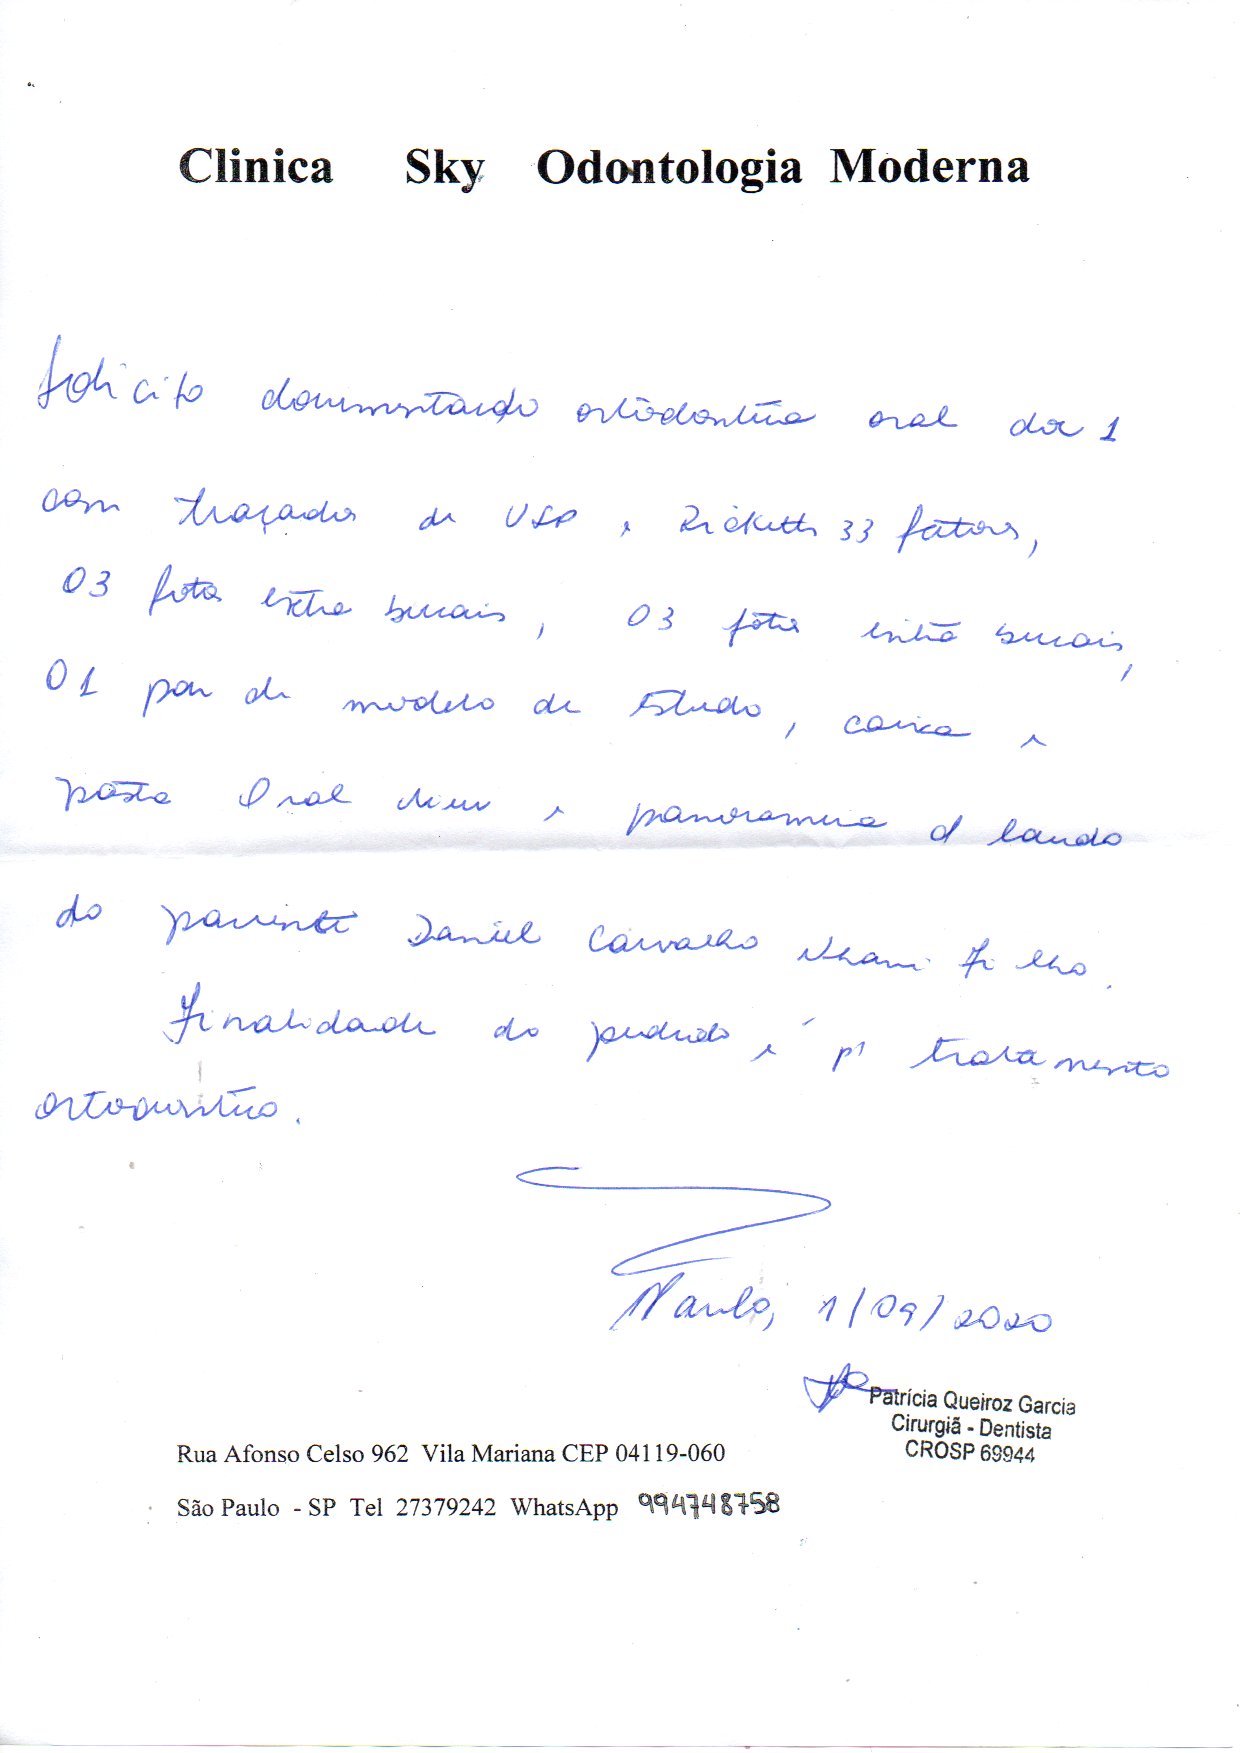 Clinica Sky Odontologia Moderna
Solicito documentação ortodontica oral doc 1
com traçados de USP e Ricketts 33 fatores,
03 fotos extra bucais, 03 fotos intra bucais,
01 par de modelo de estudo, caixa e
pasta Oral e panoramica c/ laudo
do paciente Daniel Carvalho Filho.
Finalidade do pedido é p/ tratamento
ortodontico.
SPaulo, 1/09/2020
Patrícia Queiroz Garcia
Cirurgiã - Dentista
CROSP 69944
Rua Afonso Celso 962 Vila Mariana CEP 04119-060
São Paulo - SP Tel 27379242 WhatsApp 994748758